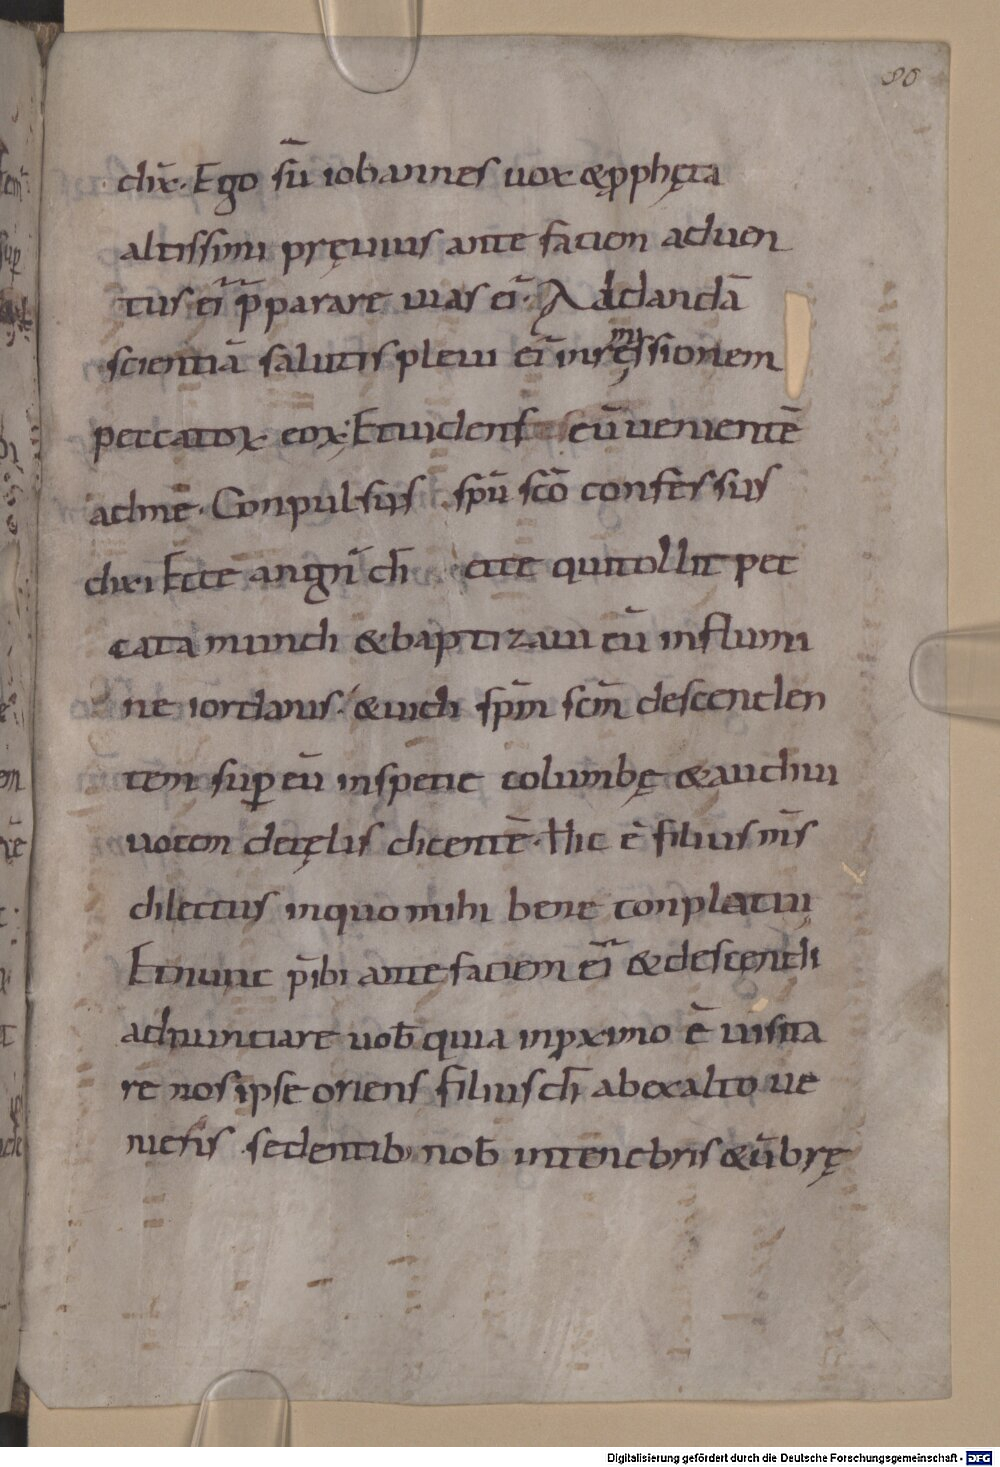 80
dix̄. Ego sū iohannes uox & ꝓphęta
altissimi pręuius ante faciem aduen
tus ei᷒ p̄parare uias ei᷒. Addandā
scientiā salutis pleui ei᷒ inremissionem
peccatoꝝ eoꝝ. Et uidens eū uenientē
adme. Conpulsus spū scō confessus
dixi Ecce angn̄ dī ecce quitollit pec
cata mundi & baptizaui eū influmi
ne iordanis. & uidi spm̄ scm̄ descenden
tem suꝑ eū inspecie columbę & audiui
uocem decęlis dicentē. Hic ē filius ms̄
dilectus inquo mihi bene conplacui
Et nunc p̄ibi ante faciem ei᷒ & descendi
adnunciare uob̄ quia inꝓximo ē uisita
re nos ipse oriens filius dī abexalto ue
niens sedentib; nob̄ intenebris & ūbrę
Digitalisierung gefördert durch die Deutsche Forschungsgemeinschaft - DFG